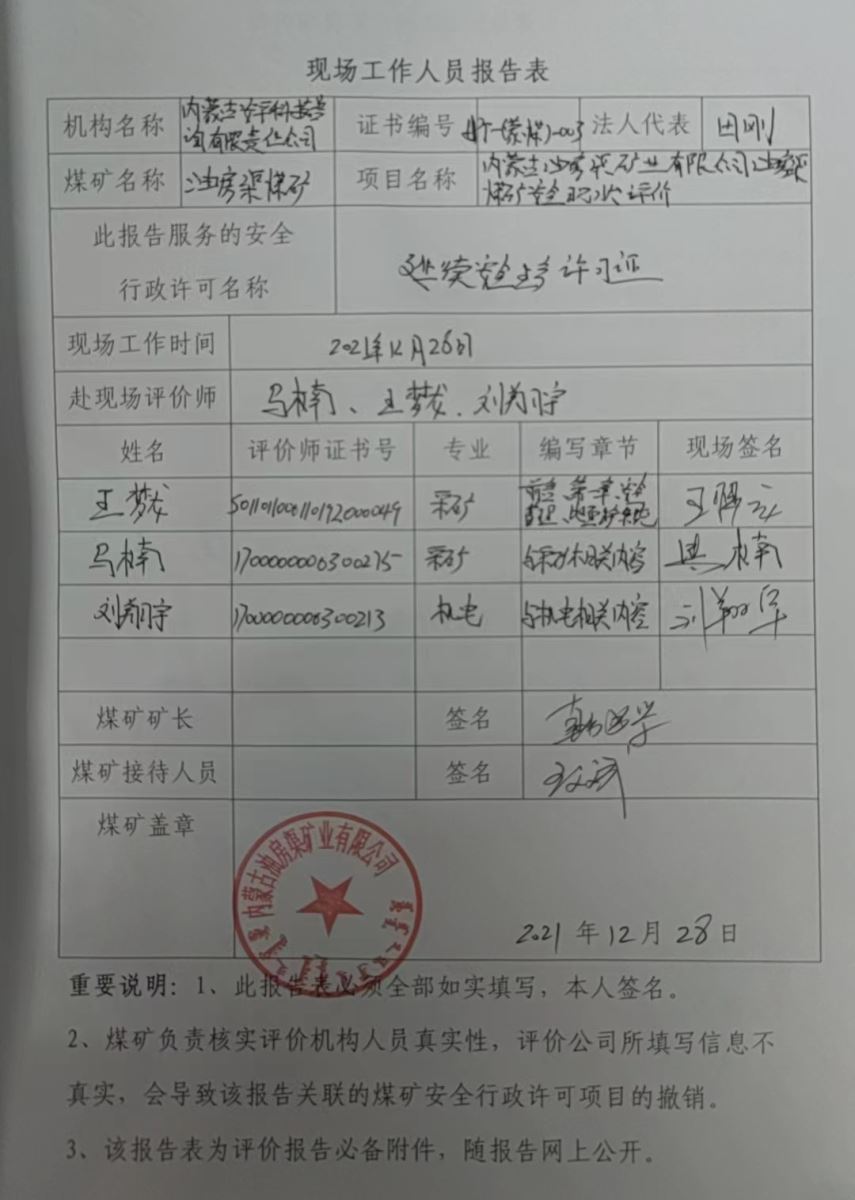 现场工作人员报告表
机构名称 内蒙古 科技咨 证书编号 -003 法人代表 田刚
询有限责任公司
煤矿名称 油房渠煤矿 项目名称 内蒙古油房渠矿业有限公司油房渠
煤矿安全现状评价
此报告服务的安全
行政许可名称 延续安全生产许可证
现场工作时间 2021年12月26日
赴现场评价师 马楠、王梦龙、刘翔宇
姓名 评价师证书号 专业 编写章节 现场签名
王梦龙 S011011000110192000049 采矿 前言、第一章、安全
管理、地质
马楠 1700000006300275 采矿 与采矿相关内容 马楠
刘翔宇 1700000006300213 机电 与机电相关内容 刘翔宇
煤矿矿长 签名
煤矿接待人员 签名
煤矿盖章
内蒙古油房渠矿业有限公司
2021年12月28日
重要说明：1、此报告表必须全部如实填写，本人签名。
2、煤矿负责核实评价机构人员真实性，评价公司所填写信息不
真实，会导致该报告关联的煤矿安全行政许可项目的撤销。
3、该报告表为评价报告必备附件，随报告网上公开。